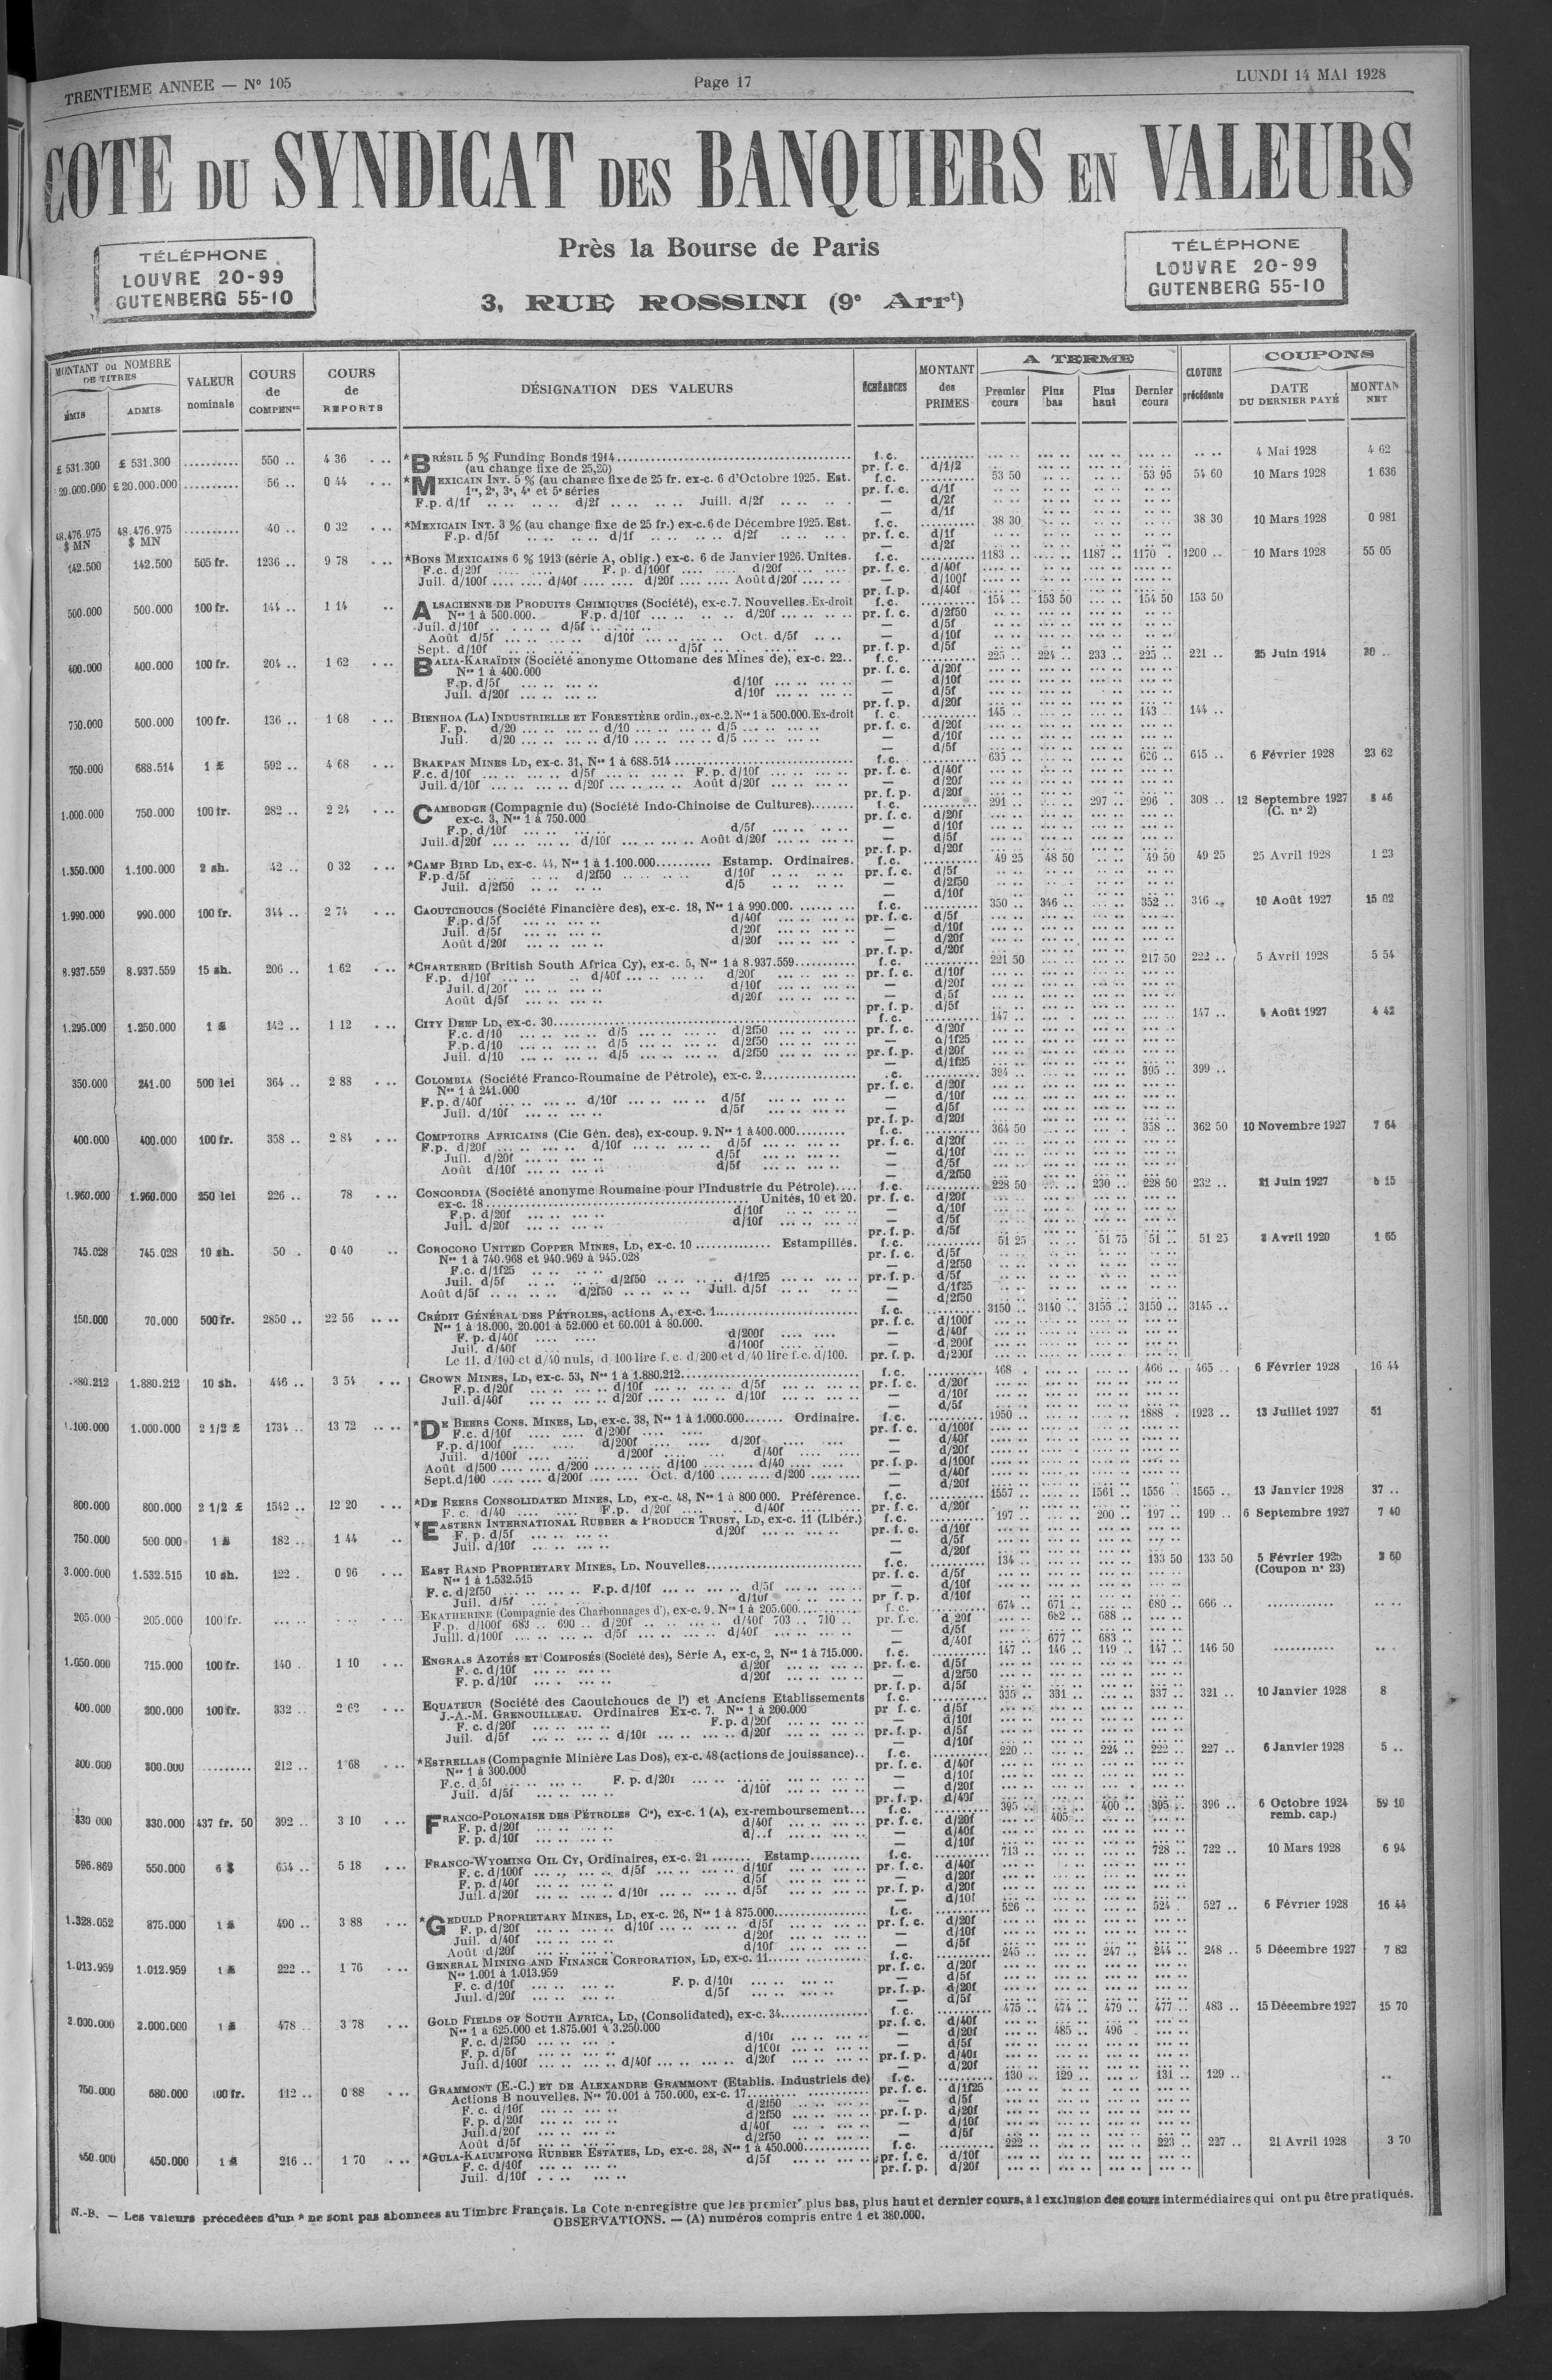 TRENTIEME ANNEE — N° 105
Page 17
LUNDI 14 MAI 1928
COTE DU SYNDICAT DES BANQUIERS EN VALEURS
Près la Bourse de Paris
3, RUE ROSSINI (9e Arrt)
TÉLÉPHONE
LOUVRE 20-99
GUTENBERG 55-10
TÉLÉPHONE
LOUVRE 20-99
GUTENBERG 55-10
MONTANT ou NOMBRE DE TITRES
ÉMIS
ADMIS
VALEUR nominale
COURS de COMPENon
COURS de REPORTS
DÉSIGNATION DES VALEURS
ÉCHÉANCES
MONTANT des PRIMES
A TERME
Premier cours
Plus bas
Plus haut
Dernier cours
CLOTURE précédente
COUPONS
DATE DU DERNIER PAYÉ
MONTAN NET
£ 531.300 £ 531.300 .......... 550 .. 4 36 *BRÉSIL 5 % Funding Bonds 1914 f.c. 4 Mai 1928 4 62
(au change fixe de 25,20) pr. f. c. d/1/2
20.000.000 £ 20.000.000 .......... 56 .. 0 44 *MEXICAIN INT. 5 % (au change fixe de 25 fr. ex-c. 6 d'Octobre 1925. Est. f.c. 53 50 53 95 54 60 10 Mars 1928 1 636
1re, 2e, 3e, 4e et 5e séries pr. f. c. d/1f
F.p. d/1f d/2f Juill. d/2f — d/2f
— d/1f
48.476.975 $ MN 48.476.975 $ MN .......... 40 .. 0 32 *MEXICAIN INT. 3 % (au change fixe de 25 fr.) ex-c. 6 de Décembre 1925. Est. f.c. 38 30 38 30 10 Mars 1928 0 981
F.p. d/5f d/1f d/2f pr. f. c. d/1f
— d/2f
142.500 142.500 505 fr. 1236 .. 9 78 *BONS MEXICAINS 6 % 1913 (série A, oblig.) ex-c. 6 de Janvier 1926. Unités. f.c. 1183 .. 1187 .. 1170 .. 1200 .. 10 Mars 1928 55 05
F.c. d/20f F. p. d/100f d/20f pr. f. c. d/40f
Juil. d/100f d/40f d/20f Août d/20f — d/100f
pr. f. p. d/40f
500.000 500.000 100 fr. 144 .. 1 14 ALSACIENNE DE PRODUITS CHIMIQUES (Société), ex-c. 7. Nouvelles. Ex-droit f.c. 154 .. 153 50 154 50 153 50
Nos 1 à 500.000. F.p. d/10f d/20f pr. f. c. d/2f50
Juil. d/10f d/5f — d/5f
Août d/5f d/10f Oct. d/5f — d/10f
Sept. d/10f d/5f pr. f. p. d/5f
400.000 400.000 100 fr. 204 .. 1 62 BALIA-KARAÏDIN (Société anonyme Ottomane des Mines de), ex-c. 22.. f.c. 225 .. 224 .. 233 .. 225 .. 221 .. 25 Juin 1914 20 ..
Nos 1 à 400.000 pr. f. c. d/20f
F.p. d/5f d/10f — d/10f
Juil. d/20f d/10f — d/5f
pr. f. p. d/20f
750.000 500.000 100 fr. 136 .. 1 08 BIENHOA (LA) INDUSTRIELLE ET FORESTIÈRE ordin., ex-c. 2. Nos 1 à 500.000. Ex-droit f. c. 145 .. 143 .. 144 ..
F. p. d/20 d/10 d/5 pr. f. c. d/20f
Juil. d/20 d/10 d/5 — d/10f
— d/5f
750.000 688.514 1 £ 592 .. 4 68 BRAKPAN MINES LD, ex-c. 31, Nos 1 à 688.514 f.c. 635 .. 626 .. 615 .. 6 Février 1928 23 62
F.c. d/10f d/5f F. p. d/10f pr. f. c. d/40f
Juil. d/10f d/20f Août d/20f — d/20f
pr. f. p. d/20f
1.000.000 750.000 100 fr. 282 .. 2 24 CAMBODGE (Compagnie du) (Société Indo-Chinoise de Cultures) f.c. 291 .. 297 .. 296 . 308 .. 12 Septembre 1927 8 46
ex-c. 3, Nos 1 à 750.000 pr. f. c. d/20f (C. n° 2)
F.p. d/10f d/5f — d/10f
Juil. d/20f d/10f Août d/20f — d/5f
pr. f. p. d/20f
1.350.000 1.100.000 2 sh. 42 .. 0 32 *CAMP BIRD LD, ex-c. 44, Nos 1 à 1.100.000 Estamp. Ordinaires. f.c. 49 25 48 50 49 50 49 25 25 Avril 1928 1 23
F.p. d/5f d/2f50 d/10f pr. f. c. d/5f
Juil. d/2f50 d/5 — d/2f50
— d/10f
1.990.000 990.000 100 fr. 344 .. 2 74 CAOUTCHOUCS (Société Financière des), ex-c. 18, Nos 1 à 990.000. f.c. 350 .. 346 .. 352 .. 346 .. 10 Août 1927 15 02
F.p. d/5f d/40f pr. f. c. d/5f
Juil. d/5f d/20f — d/10f
Août d/20f d/20f — d/20f
pr. f. p. d/20f
8.937.559 8.937.559 15 sh. 206 .. 1 62 *CHARTERED (British South Africa Cy), ex-c. 5, Nos 1 à 8.937.559 f.c. 221 50 217 50 222 .. 5 Avril 1928 5 54
F.p. d/10f d/40f d/20f pr. f. c. d/10f
Juil. d/20f d/10f — d/20f
Août d/5f d/20f — d/5f
pr. f. p. d/5f
1.295.000 1.250.000 1 £ 142 .. 1 12 CITY DEEP LD, ex-c. 30 f.c. 147 .. 147 .. 5 Août 1927 4 42
F.c. d/10 d/5 d/2f50 pr. f. c. d/20f
F.p. d/10 d/5 d/2f50 — d/1f25
Juil. d/10 d/5 d/2f50 pr. f. p. d/20f
— d/1f25
350.000 241.00 500 lei 364 .. 2 88 COLOMBIA (Société Franco-Roumaine de Pétrole), ex-c. 2 .c. 394 .. 395 .. 399 ..
Nos 1 à 241.000 pr. f. c. d/20f
F.p. d/40f d/10f d/5f — d/10f
Juil. d/10f d/5f — d/5f
pr. f. p. d/20f
400.000 400.000 100 fr. 358 .. 2 84 COMPTOIRS AFRICAINS (Cie Gén. des), ex-coup. 9. Nos 1 à 400.000 f.c. 364 50 358 .. 362 50 10 Novembre 1927 7 64
F.p. d/20f d/10f d/5f pr. f. c. d/20f
Juil. d/20f d/5f — d/10f
Août d/10f d/5f — d/5f
— d/2f50
1.960.000 1.960.000 250 lei 226 .. 78 CONCORDIA (Société anonyme Roumaine pour l'Industrie du Pétrole) f.c. 228 50 230 .. 228 50 232 .. 21 Juin 1927 15
ex-c. 18 Unités, 10 et 20. pr. f. c. d/20f
F.p. d/20f d/10f — d/10f
Juil. d/20f d/10f — d/5f
pr. f. p. d/5f
745.028 745.028 10 sh. 50 . 0 40 COROCORO UNITED COPPER MINES, LD, ex-c. 10 Estampillés. f.c. 51 25 51 75 51 .. 51 25 Avril 1920 1 65
Nos 1 à 740.968 et 940.969 à 945.028 pr. f. c. d/5f
F.c. d/1f25 — d/2f50
Juil. d/5f d/2f50 d/1f25 pr. f. p. d/5f
Août d/5f d/2f50 Juil. d/5f — d/1f25
— d/2f50
150.000 70.000 500 fr. 2850 .. 22 56 CRÉDIT GÉNÉRAL DES PÉTROLES, actions A, ex-c. 1 f.c. 3150 .. 3140 .. 3155 .. 3150 .. 3145 ..
Nos 1 à 18.000, 20.001 à 52.000 et 60.001 à 80.000. pr. f. c. d/100f
F. p. d/40f d/200f — d/40f
Juil. d/40f d/100f — d/200f
Le 11. d/100 et d/40 nuls, d 100 lire f. c. d/200 et d/40 lire f. c. d/100. pr. f. p. d/200f
.880.212 1.880.212 10 sh. 446 .. 3 54 CROWN MINES, LD, ex-c. 53, Nos 1 à 1.880.212 f.c. 468 . 466 .. 465 .. 6 Février 1928 16 44
F.p. d/20f d/10f d/5f pr. f. c. d/20f
Juil. d/40f d/20f d/10f — d/10f
— d/5f
1.100.000 1.000.000 2 1/2 £ 1734 .. 13 72 *DE BEERS CONS. MINES, LD, ex-c. 38, Nos 1 à 1.000.000 Ordinaire. f.c. 1950 .. 1888 . 1923 .. 13 Juillet 1927 51
F.c. d/10f d/200f pr. f. c. d/100f
F.p. d/100f d/200f d/20f — d/40f
Juil. d/100f d/200f d/40f — d/20f
Août d/500 d/200 d/100 d/40 pr. f. p. d/100f
Sept. d/100 d/200f Oct. d/100 d/200 — d/40f
— d/20f
800.000 800.000 2 1/2 £ 1542 .. 12 20 *DE BEERS CONSOLIDATED MINES, LD, ex-c. 48, Nos 1 à 800 000. Préférence. f.c. 1557 .. 1561 .. 1556 . 1565 .. 13 Janvier 1928 37 ..
F. c. d/40 F.p. d/20f d/40f pr. f. c. d/20f
750.000 500.000 1 £ 182 .. 1 44 *EASTERN INTERNATIONAL RUBBER & PRODUCE TRUST, LD, ex-c. 11 (Libér.) f.c. 197 .. 200 .. 197 .. 199 .. 6 Septembre 1927 7 40
F. p. d/5f d/20f pr. f. c. d/10f
Juil. d/10f — d/5f
— d/20f
3.000.000 1.532.515 10 sh. 122 . 0 96 EAST RAND PROPRIETARY MINES, LD, Nouvelles f.c. 134 .. 133 50 133 50 5 Février 1925 60
Nos 1 à 1.532.515 pr. f. c. d/5f (Coupon n° 23)
F. c. d/2f50 F.p. d/10f d/5f — d/10f
Juil. d/5f d/10f pr f. p. d/10f
205.000 205.000 100 fr. EKATHERINE (Compagnie des Charbonnages d'), ex-c. 9. Nos 1 à 205.000 f. c. 674 .. 671 .. 680 .. 666 ..
F.p. d/100f 683 .. 690 .. d/20f d/40f 703 .. 710 .. pr. f.c. d 20f 682 .. 688 ..
Juill. d/100f d/5f d/40f — d/5f
— d/40f 677 .. 683 ..
1.050.000 715.000 100 fr. 140 . 1 10 ENGRAIS AZOTÉS ET COMPOSÉS (Société des), Série A, ex-c, 2, Nos 1 à 715.000. f.c. 147 .. 146 .. 149 .. 147 .. 146 50
F. c. d/10f d/20f pr. f. c. d/5f
F. p. d/10f d/20f — d/2f50
pr. f. p. d/5f
400.000 200.000 100 fr. 332 .. 2 62 EQUATEUR (Société des Caoutchoucs de l') et Anciens Etablissements f.c. 335 .. 331 .. 337 .. 321 .. 10 Janvier 1928 8
J.-A.-M. GRENOUILLEAU. Ordinaires Ex-c. 7. Nos 1 à 200.000 pr f. c. d/5f
F. c. d/20f F.p. d/20f — d/10f
Juil. d/5f d/10f d/20f pr. f. p. d/5f
— d/10f
300.000 300.000 ......... 212 .. 1 68 *ESTRELLAS (Compagnie Minière Las Dos), ex-c. 48 (actions de jouissance).. f.c. 220 .. 224 .. 222 .. 227 .. 6 Janvier 1928 5 ..
Nos 1 à 300.000 pr. f. c. d/40f
F.c. d/5f F. p. d/20f — d/10f
Juil. d/5f d/10f — d/20f
pr. f. p. d/40f
330 000 330.000 437 fr. 50 392 .. 3 10 FRANCO-POLONAISE DES PÉTROLES Cie), ex-c. 1 (A), ex-remboursement... f.c. 395 .. 400 .. 395 .. 396 .. 6 Octobre 1924 59 10
F. p. d/20f d/40f pr. f. c. d/20f 405 .. remb. cap.)
F. p. d/10f d/..f — d/40f
— d/10f
596.869 550.000 6 $ 654 .. 5 18 FRANCO-WYOMING OIL CY, Ordinaires, ex-c. 21 Estamp. f.c. 713 .. 728 .. 722 .. 10 Mars 1928 6 94
F. c. d/100f d/5f d/10f pr. f. c. d/40f
F. p. d/40f d/5f — d/20f
Juil. d/20f d/10f d/5f pr. f. p. d/20f
— d/10f
1.328.052 875.000 1 £ 490 .. 3 88 *GEDULD PROPRIETARY MINES, LD, ex-c. 26, Nos 1 à 875.000 f.c. 526 .. 524 . 527 .. 6 Février 1928 16 44
F. p. d/20f d/10f d/5f pr. f. c. d/20f
Juil. d/40f d/20f — d/10f
Août d/20f d/10f — d/5f
1.013.959 1.012.959 1 £ 222 .. 1 76 GENERAL MINING AND FINANCE CORPORATION, LD, ex-c. 11 f.c. 245 .. 247 .. 244 .. 248 .. 5 Décembre 1927 7 82
Nos 1.001 à 1.013.959 pr. f. c. d/20f
F. c. d/10f F. p. d/10f — d/5f
Juil. d/20f d/5f pr. f. p. d/20f
— d/5f
2.000.000 2.000.000 1 £ 478 .. 3 78 GOLD FIELDS OF SOUTH AFRICA, LD, (Consolidated), ex-c. 34 f.c. 475 .. 474 .. 479 .. 477 .. 483 .. 15 Décembre 1927 15 70
Nos 1 à 625.000 et 1.875.001 à 3.250.000 pr. f. c. d/40f
F. c. d/2f50 d/10f — d/20f 485 .. 496 ..
F. p. d/5f d/100f — d/5f
Juil. d/100f d/40f d/20f pr. f. p. d/40f
— d/20f
750.000 680.000 100 fr. 112 .. 0 88 GRAMMONT (E.-C.) ET DE ALEXANDRE GRAMMONT (Etablis. Industriels de) f.c. 130 .. 129 .. 131 .. 129 ..
Actions B nouvelles. Nos 70.001 à 750.000, ex-c. 17 pr. f. c. d/1f25
F. c. d/10f d/2f50 — d/5f
F. p. d/20f d/2f50 pr. f. p. d/20f
Juil. d/20f d/40f — d/10f
Août d/5f d/2f50 — d/5f
450.000 450.000 1 £ 216 .. 1 70 *GULA-KALUMPONG RUBBER ESTATES, LD, ex-c. 28, Nos 1 à 450.000 f.c. 222 .. 223 .. 227 .. 21 Avril 1928 3 70
F. c. d/10f d/5f pr. f. c. d/10f
Juil. d/10f pr. f. p. d/20f
N.-B. — Les valeurs précédées d'un * ne sont pas abonnées au Timbre Français. La Cote n'enregistre que les premier, plus bas, plus haut et dernier cours, à l'exclusion des cours intermédiaires qui ont pu être pratiqués.
OBSERVATIONS. — (A) numéros compris entre 1 et 380.000.